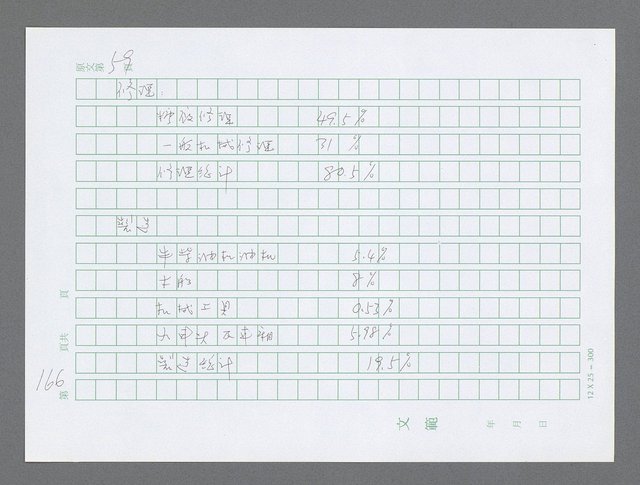 原文第59
修理:
特殊修理 49.5%
一般机械修理 31 %
修理総计 80.5%
製造
柴油机油机 5.4%
木船 8%
机械工具 0.53%
火車头及車箱 5.98%
製造総计 19.5%
第166頁共 頁
文範
年 月 日
12 X 25 = 300